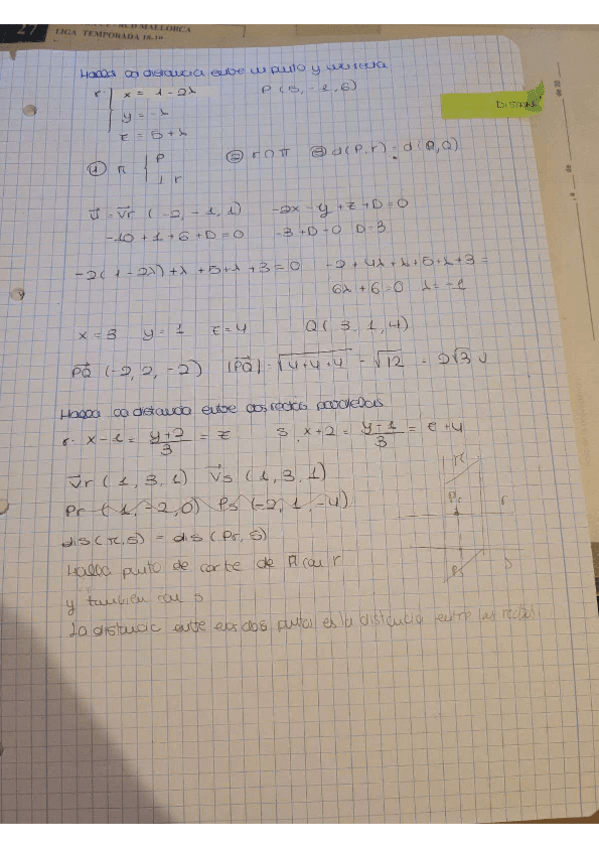 27
MALLORCA
LIGA TEMPORADA 18-19
Hallar la distancia entre un punto y una recta
r: { x = 1 - 2λ
y = -λ
z = 5 + λ
P (5, -1, 6)
① π { P
⊥ r
② r ∩ π ③ d(P, r) = d(P, Q)
Vr (-2, -1, 1) -2x - y + z + D = 0
-10 + 1 + 6 + D = 0 -3 + D = 0 D = 3
-2(1 - 2λ) + λ + 5 + λ + 3 = 0 -2 + 4λ + λ + 5 + λ + 3 =
6λ + 6 = 0 λ = -1
x = 3 y = 1 z = 4 Q (3, 1, 4)
PQ (-2, 2, -2) |PQ| = √4+4+4 = √12 = 2√3 u
Hallar la distancia entre dos rectas paralelas
r: x - 1 = y+2/3 = z s: x + 2 = y-1/3 = z + 4
Vr (1, 3, 1) Vs (1, 3, 1)
Pr (1, -2, 0) Ps (-2, 1, -4)
dis(r, s) = dis(Pr, s)
Hallar punto de corte de π con r
y también con s
La distancia entre esos dos puntos es la distancia entre las rectas.
π
Pr
r
Ps
s